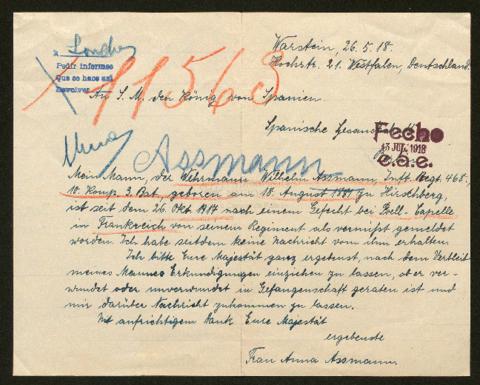 a Londres
Pedir informes
Que se haga así
Devolver
Warstein, 26.5.18.
Hochstr. 21. Westfalen, Deutschland.
11563
An S. M. den König von Spanien.
Spanische
Fecho
13 JUL. 1918
c.a.e.
Assmann
Mein Mann, der Wehrmann Wilhelm Assmann, Inft. Regt. 468.,
10. Komp. 3. Bat., geboren am 18. August 1881 zu Hirschberg,
ist seit dem 26. Okt. nach einem Gefecht bei Capelle
in Frankreich von seinem Regiment als vermißt gemeldet
worden. Ich habe seitdem keine Nachricht von ihm erhalten.
Ich bitte Eure Majestät ganz ergebenst, nach dem Verbleib
meines Mannes Erkundigungen einziehen zu lassen, ob er ver-
wundet oder unverwundet in Gefangenschaft geraten ist und
mir darüber Nachricht zukommen zu lassen.
Mit aufrichtigem Dank Eure Majestät
ergebenste
Frau Anna Assmann